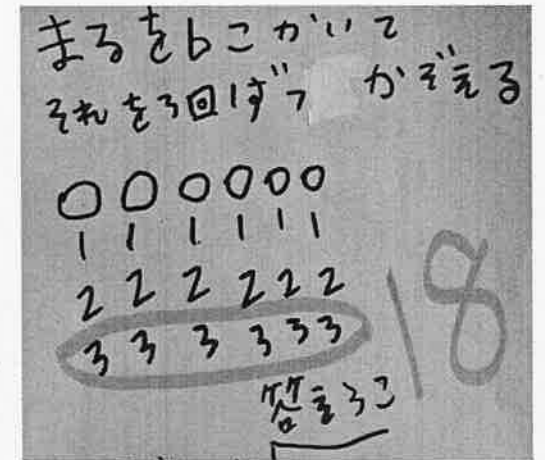 まるを6こかいて
それを3回ずつ かぞえる
○ ○ ○ ○ ○ ○
1 1 1 1 1 1
2 2 2 2 2 2
3 3 3 3 3 3
18
答え3こ